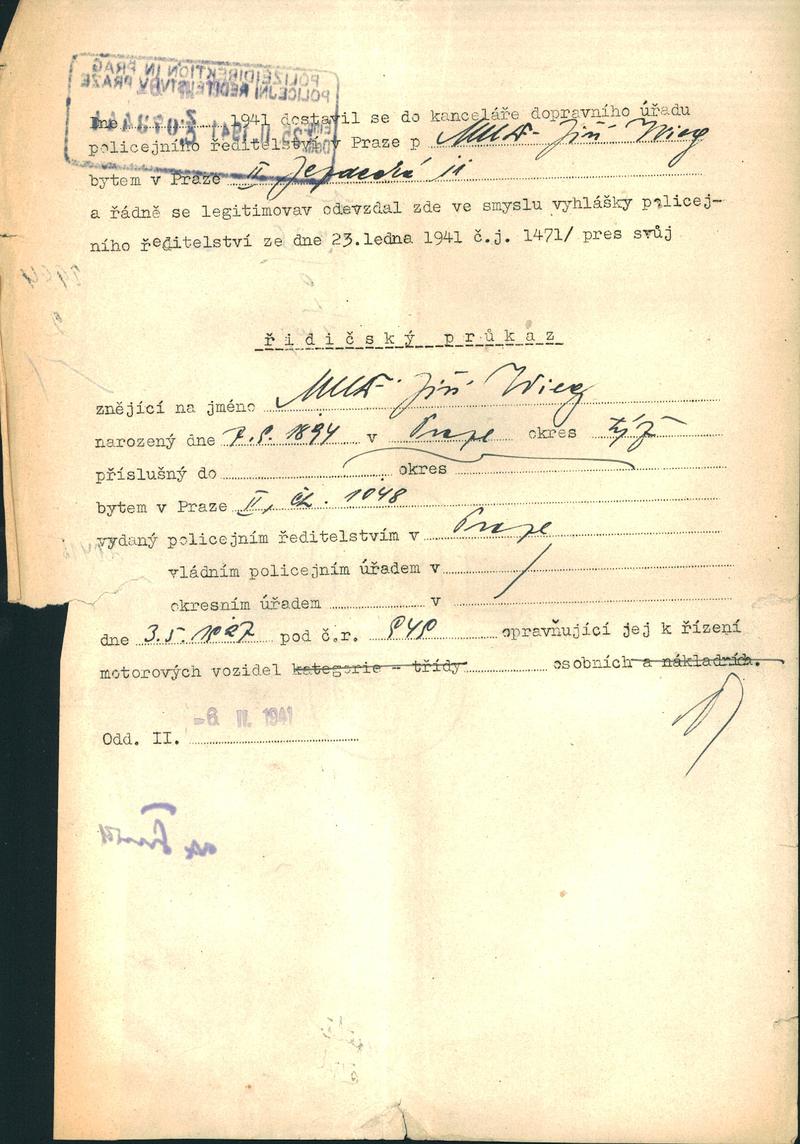 POLIZEIDIREKTION IN PRAG
POLICEJNÍ ŘEDITELSTVÍ V PRAZE
Dne 1941 dostavil se do kanceláře dopravního úřadu
policejního ředitelství v Praze p MUDr. Jiří Wieg
bytem v Praze II
a řádně se legitimovav odevzdal zde ve smyslu vyhlášky policej-
ního ředitelství ze dne 23.ledna 1941 č.j. 1471/ pres svůj
řidičský průkaz
znějící na jméno MUDr. Jiří Wieg
narozený dne 7.9. 1894 v Praze okres týž
příslušný do okres
bytem v Praze II, čč. 1048
vydaný policejním ředitelstvím v Praze
vládním policejním úřadem v
okresním úřadem v
dne 3.5. 1927 pod č.r. 949 opravňující jej k řízení
motorových vozidel kategorie - třídy osobních a nákladních.
-6 IV. 1941
Odd. II.